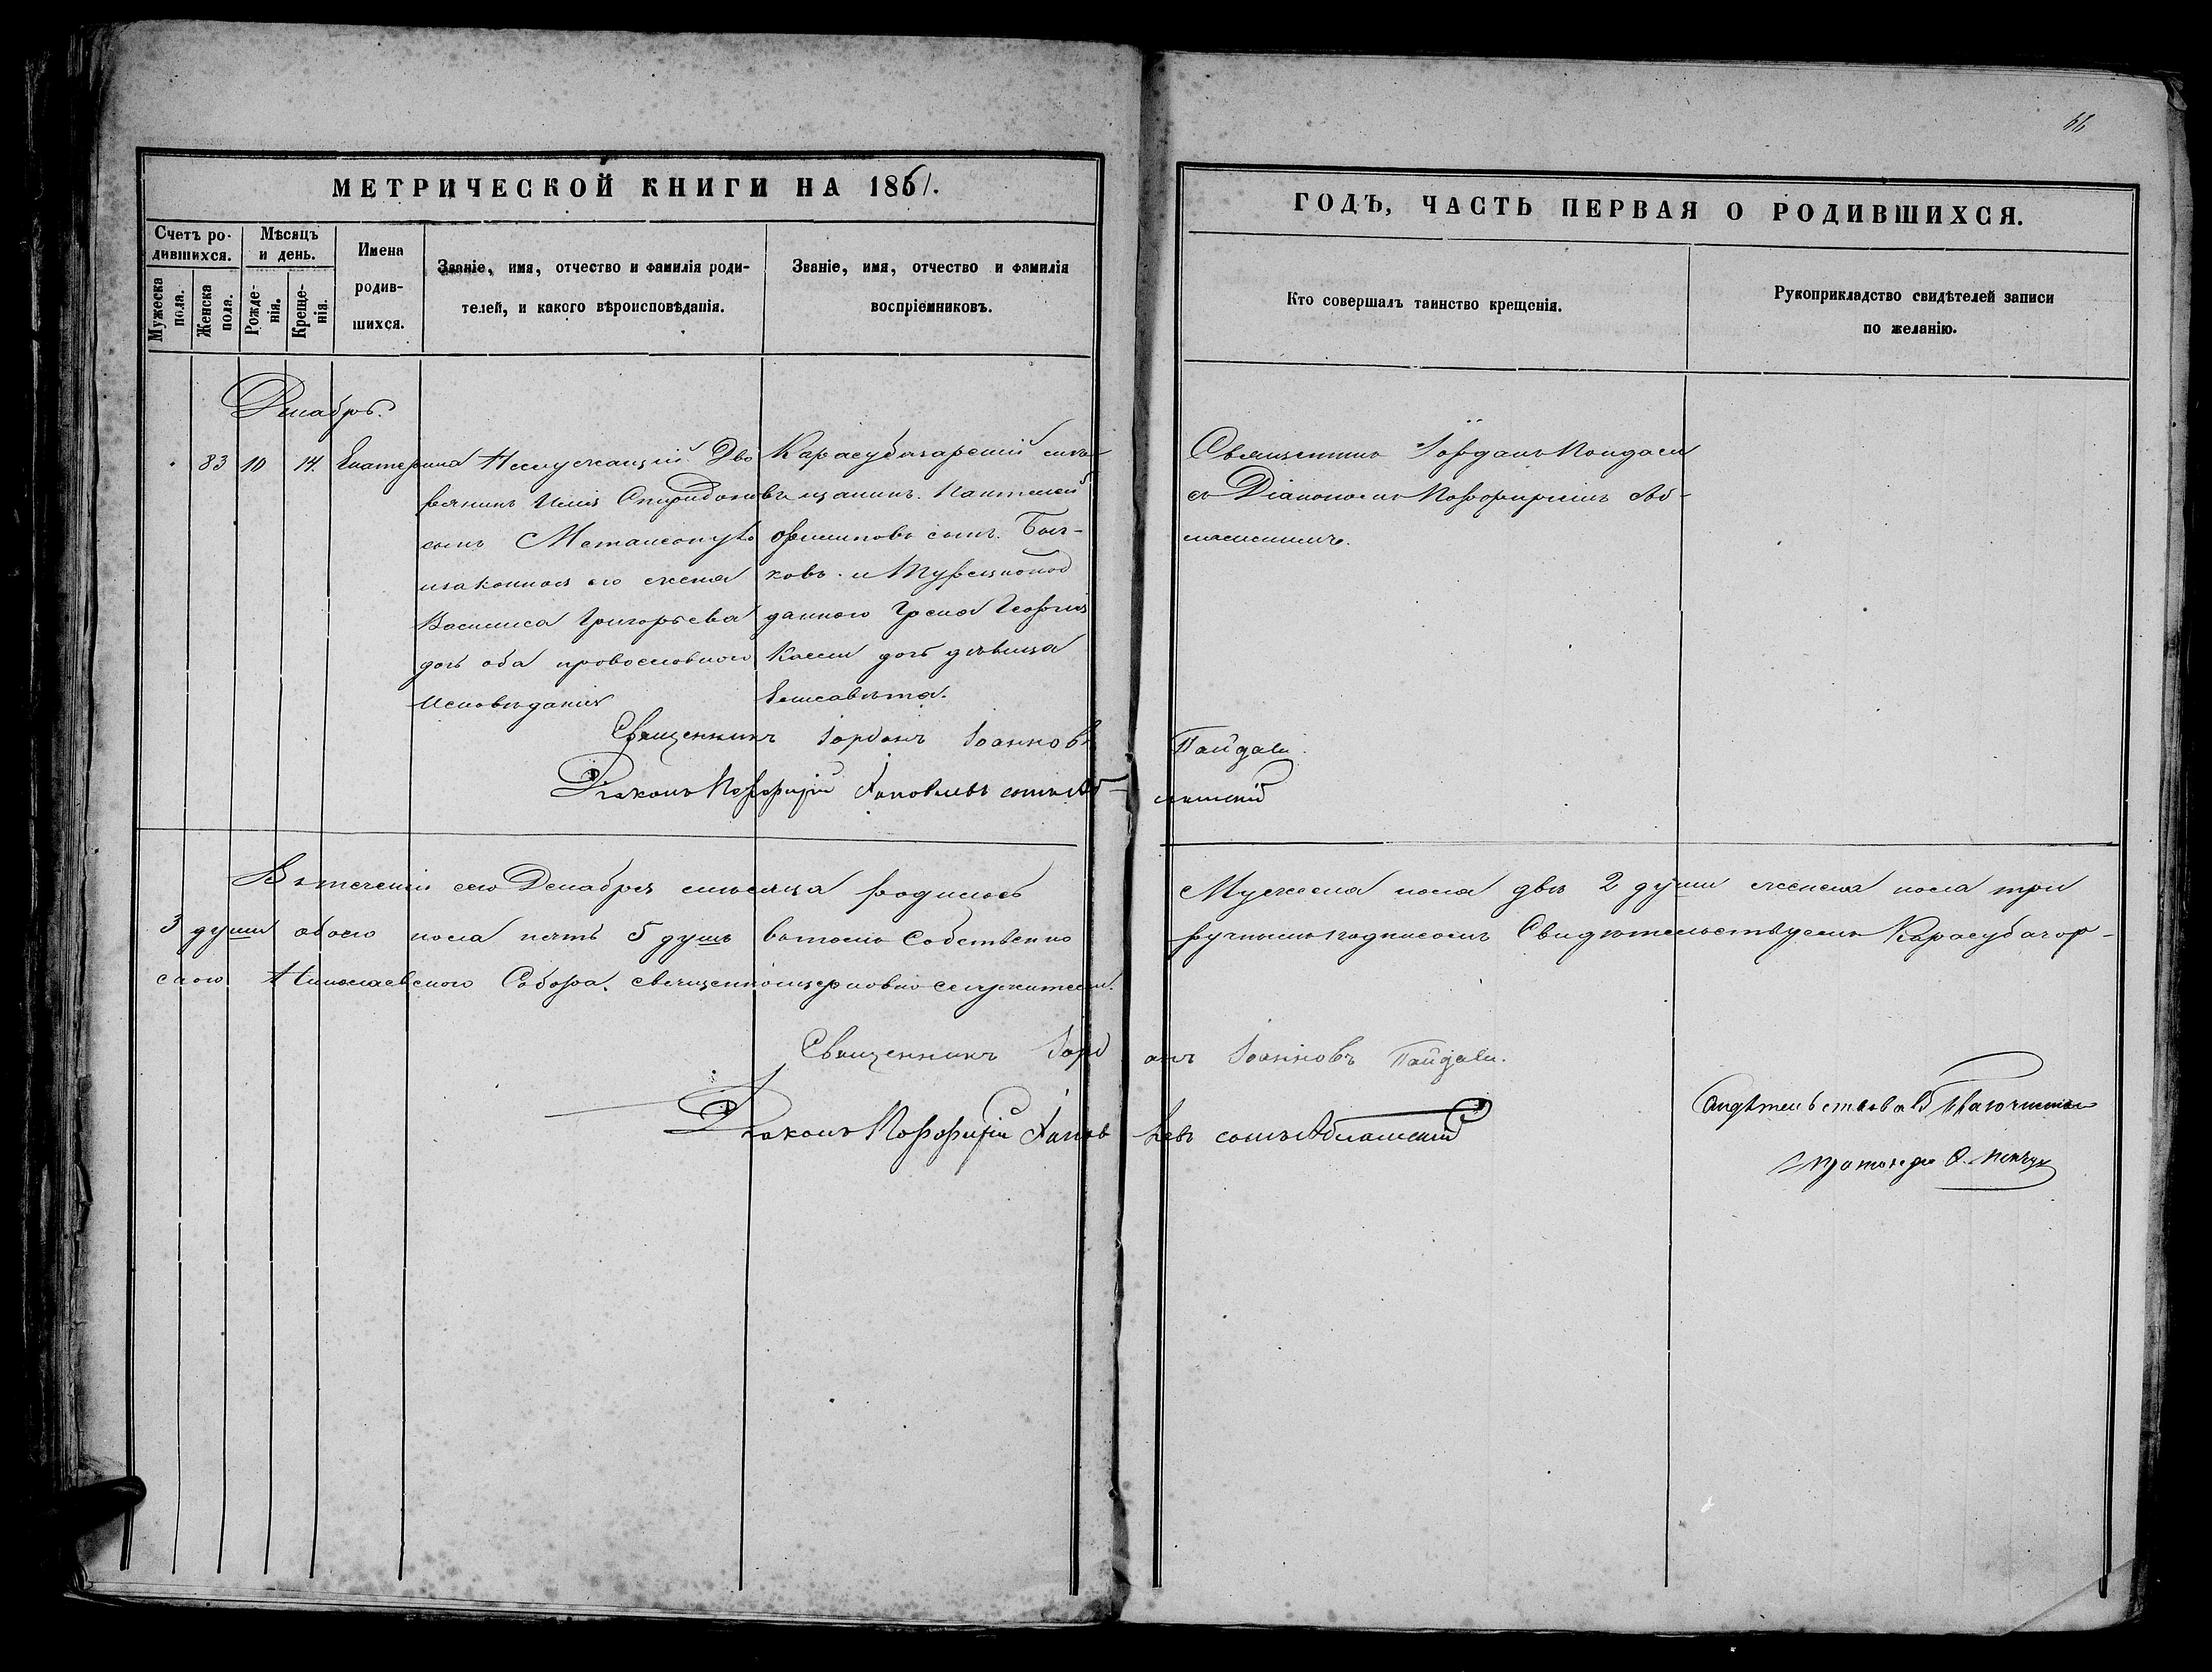 66
МЕТРИЧЕСКОЙ КНИГИ НА 1861.
ГОДЪ, ЧАСТЬ ПЕРВАЯ О РОДИВШИХСЯ.
Счетъ ро-
дившихся.
Мужеска пола.
Женска пола.
Мѣсяцъ
и день.
Рожде-
нія.
Креще-
нія.
Имена
родив-
шихся.
Званіе, имя, отчество и фамилія роди-
телей, и какого вѣроисповѣданія.
Званіе, имя, отчество и фамилія
воспріемниковъ.
Кто совершалъ таинство крещенія.
Рукоприкладство свидѣтелей записи
по желанію.
Декабрь.
83 10 14. Екатерина
Неслужащій Дво
рянинъ Илія Спиридоновъ
сынъ
изаконная его жена
Василиса Григорьева
дочь оба провословного
Исповѣданія
Карасубазарскій мѣ-
щанинъ Пантелей
сынъ
ковъ и Турецкопод
данного Грека Георгія
дочь дѣвица
Елисавета.
Священникъ Іорданъ Пайдаси
съ Діакономъ Порфиріемъ Аб-
Священникъ Іорданъ Іоанновъ Пайдаси.
Діаконъ Порфирій Яковлевъ сынъ
Втеченіи сего Декабря мѣсяца родилось Мужеска пола двѣ 2 души женска пола три
3 души обоего пола пять 5 душъ вътомъ Собственно ручнымъ подписомъ Свидѣтельствуемъ Карасубазар-
скаго Николаевского Собора. священноцерковно служители.
Священникъ Іорданъ Іоанновъ Пайдаси.
Діаконъ Порфирій Яковлевъ сынъ
Свидѣтельствовалъ Благочинный
Протоіерей